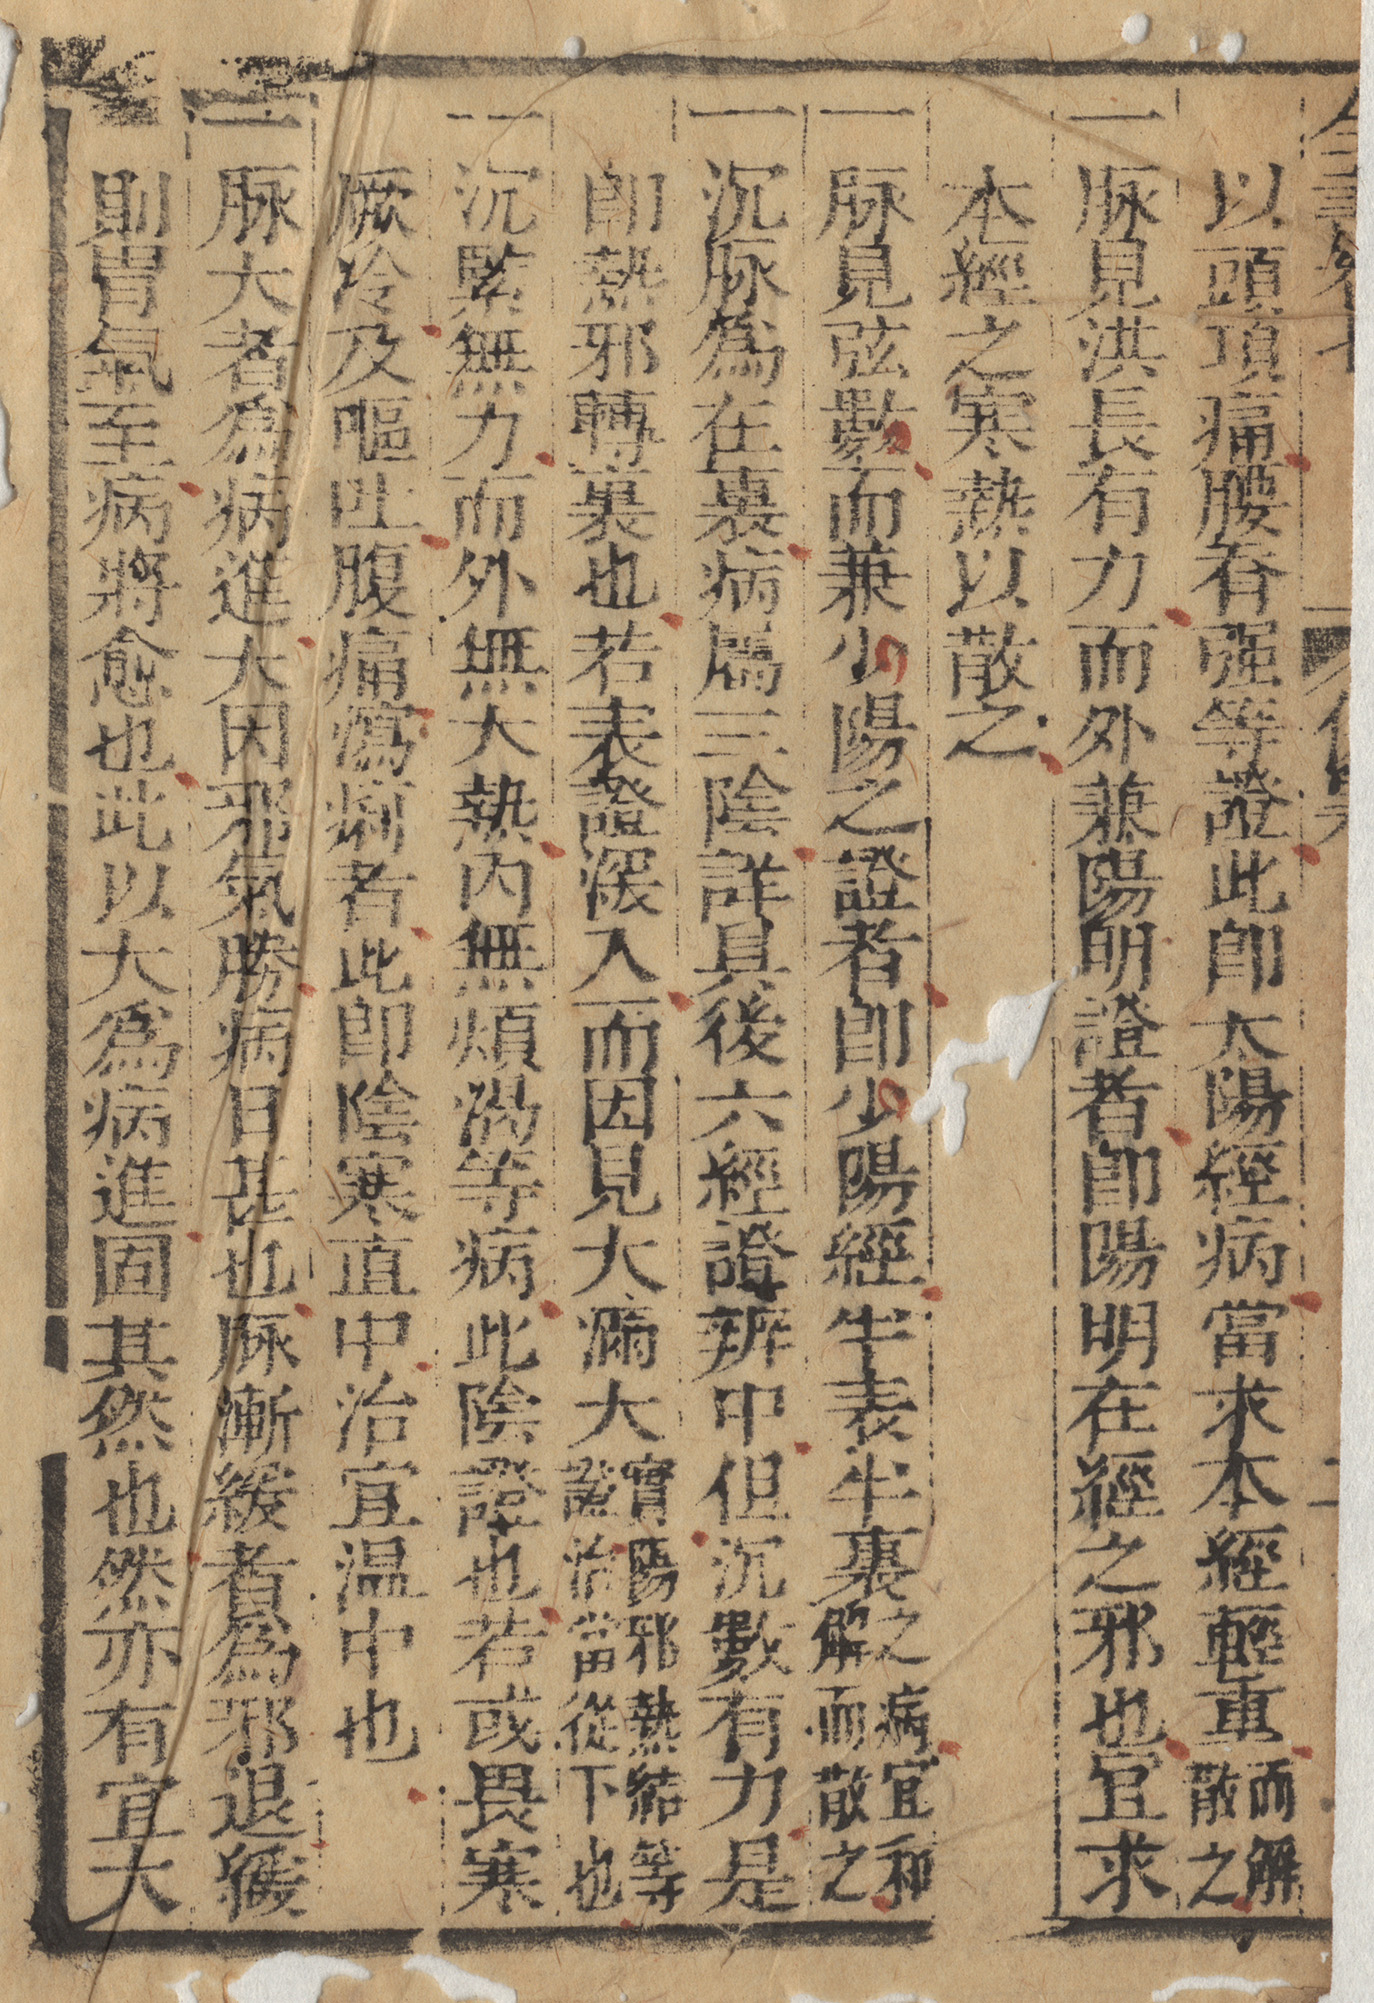 以頭項痛腰脊强等證此即太陽經病當求本經輕重而解散之
一脉見洪長有力而外兼陽明證者即陽明在經之邪也宜求
本經之寒熱以散之
一脉見弦數而兼少陽之證者即少陽經半表半裏之病宜和解而散之
一沉脉爲在裏病屬三陰詳具後六經證辨中但沉數有力是
即熱邪轉裏也若表證深入而因見大滿大實陽邪熱結等證治當從下也
一沉緊無力而外無大熱内無煩渴等病此陰證也若或畏寒
厥冷及嘔吐腹痛瀉痢者此即陰寒直中治宜温中也
一脉大者爲病進大因邪氣勝病日甚也脉漸緩者爲邪退緩
則胃氣至病將愈也此以大爲病進固其然也然亦有宜大